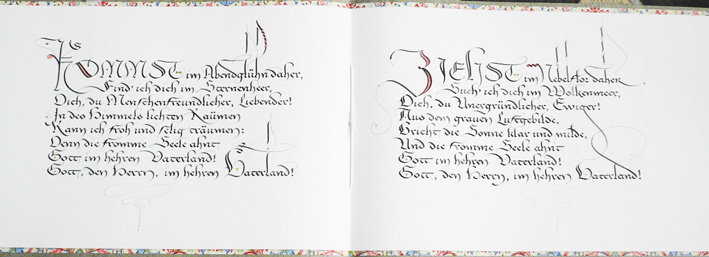 KOMMST im Abendglühn daher,
Find' ich dich im Sternenheer,
Dich, du Menschenfreundlicher, Liebender!
In des Himmels lichten Räumen
Kann ich froh und selig träumen:
Denn die fromme Seele ahnt
Gott im hehren Vaterland!
Gott, den Herrn, im hehren Vaterland!
ZIEHST im Nebelflor daher,
Such' ich dich im Wolkenmeer,
Dich, du Unergründlicher, Ewiger!
Aus dem grauen Luftgebilde,
Bricht die Sonne klar und milde,
Und die fromme Seele ahnt
Gott im hehren Vaterland!
Gott, den Herrn, im hehren Vaterland!